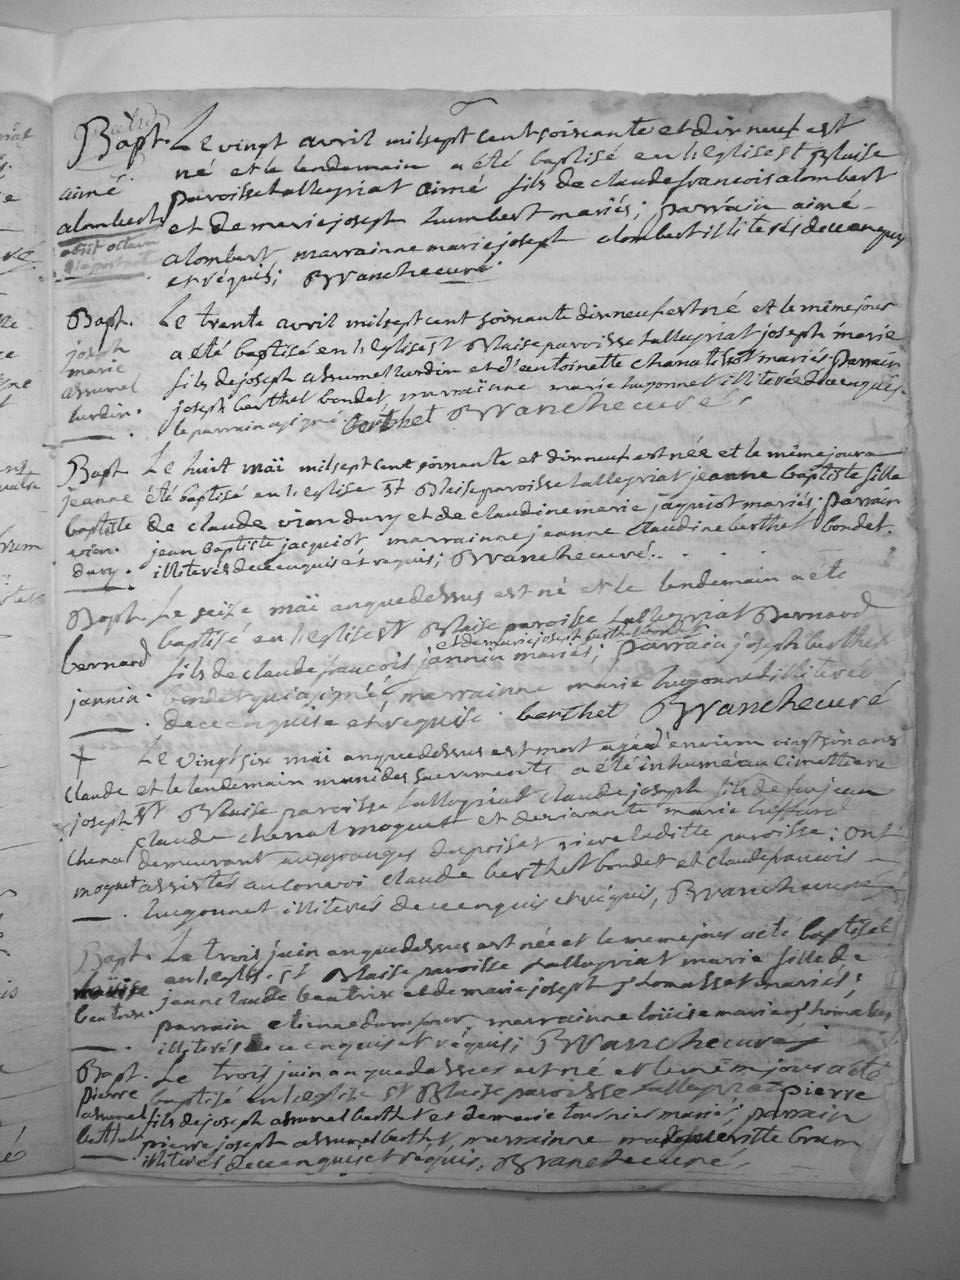 Bapt. Le vingt avril mil sept cent soixante et dix neuf est
né et le lendemain a été baptisé en l'eglise st Blaise
aimé paroisse tallegriat aimé fils de claude francois alombert
alombert et de marie joseph humbert mariés; parrain aimé
alombert, marrainne marie joseph alombert illiterés de ce enquis
et réquis; Blanche curé
Bapt. Le trente avril mil sept cent soixante dix neuf est né et le même jour
joseph a été baptisé en l'eglise st Blaise paroisse tallegriat joseph marie
marie fils de joseph assumel lurdin et d'antoinette mariés parrain
assumel joseph berthet bondet, marrainne marie hugonnet illiterée de ce enquis.
lurdin. le parrain a signé Berthet Blanche curé
Bapt. Le huit maï mil sept cent soixante et dix neuf est née et le même jour a
jeanne été baptisé en l'eglise st Blaise paroisse tallegriat jeanne baptiste fille
baptiste de claude vion dury et de claudine marie jaquiot mariés; parrain
vion. jean baptiste jacquiot, marrainne jeanne claudine berthet bondet.
dury. illiterés de ce enquis et requis; Blanche curé.
Bapt. Le seize maï an que dessus est né et le lendemain a été
baptisé en l'eglise st Blaise paroisse tallegriat Bernard
et de marie joseph berthet bondet
bernard fils de claude francois jannin mariés; parrain joseph berthet
jannin. bondet qui a signé, marrainne marie hugonnet illiterée
de ce enquise et requise. berthet Blanche curé
+ Le vingt six maï an que dessus est mort agé d'environ vingt six ans
claude et le lendemain muni des sacrements a été inhumé au cimettiere
joseph st Blaise paroisse tallegriat claude joseph fils de feu jean
claude chenal moquet et de vivante marie
chenal demeurant aux granges du poisat riere laditte paroisse: ont
moquet assistés au convoi claude berthet bondet et claude francois
hugonnet illiterés de ce enquis et réquis, Blanche curé
Bapt. Le trois juin an que dessus est née et le meme jour a été baptisée
en l'eglise st Blaise paroisse tallegriat marie fille de
beatrix. jean claude beatrix et de marie joseph thomasset mariés;
parrain etienne marrainne loüise marie
illiterés de ce enquis et réquis; Blanche curé
Bapt. Le trois juin an que dessus est né et le même jour a été
pierre baptisé en l'eglise st Blaise paroisse tallegriat pierre
assumel fils de joseph assumel berthet et de marie tournier mariés; parrain
berthet pierre joseph assumel berthet, marrainne brun
illiterés de ce enquis et requis, Blanche curé.